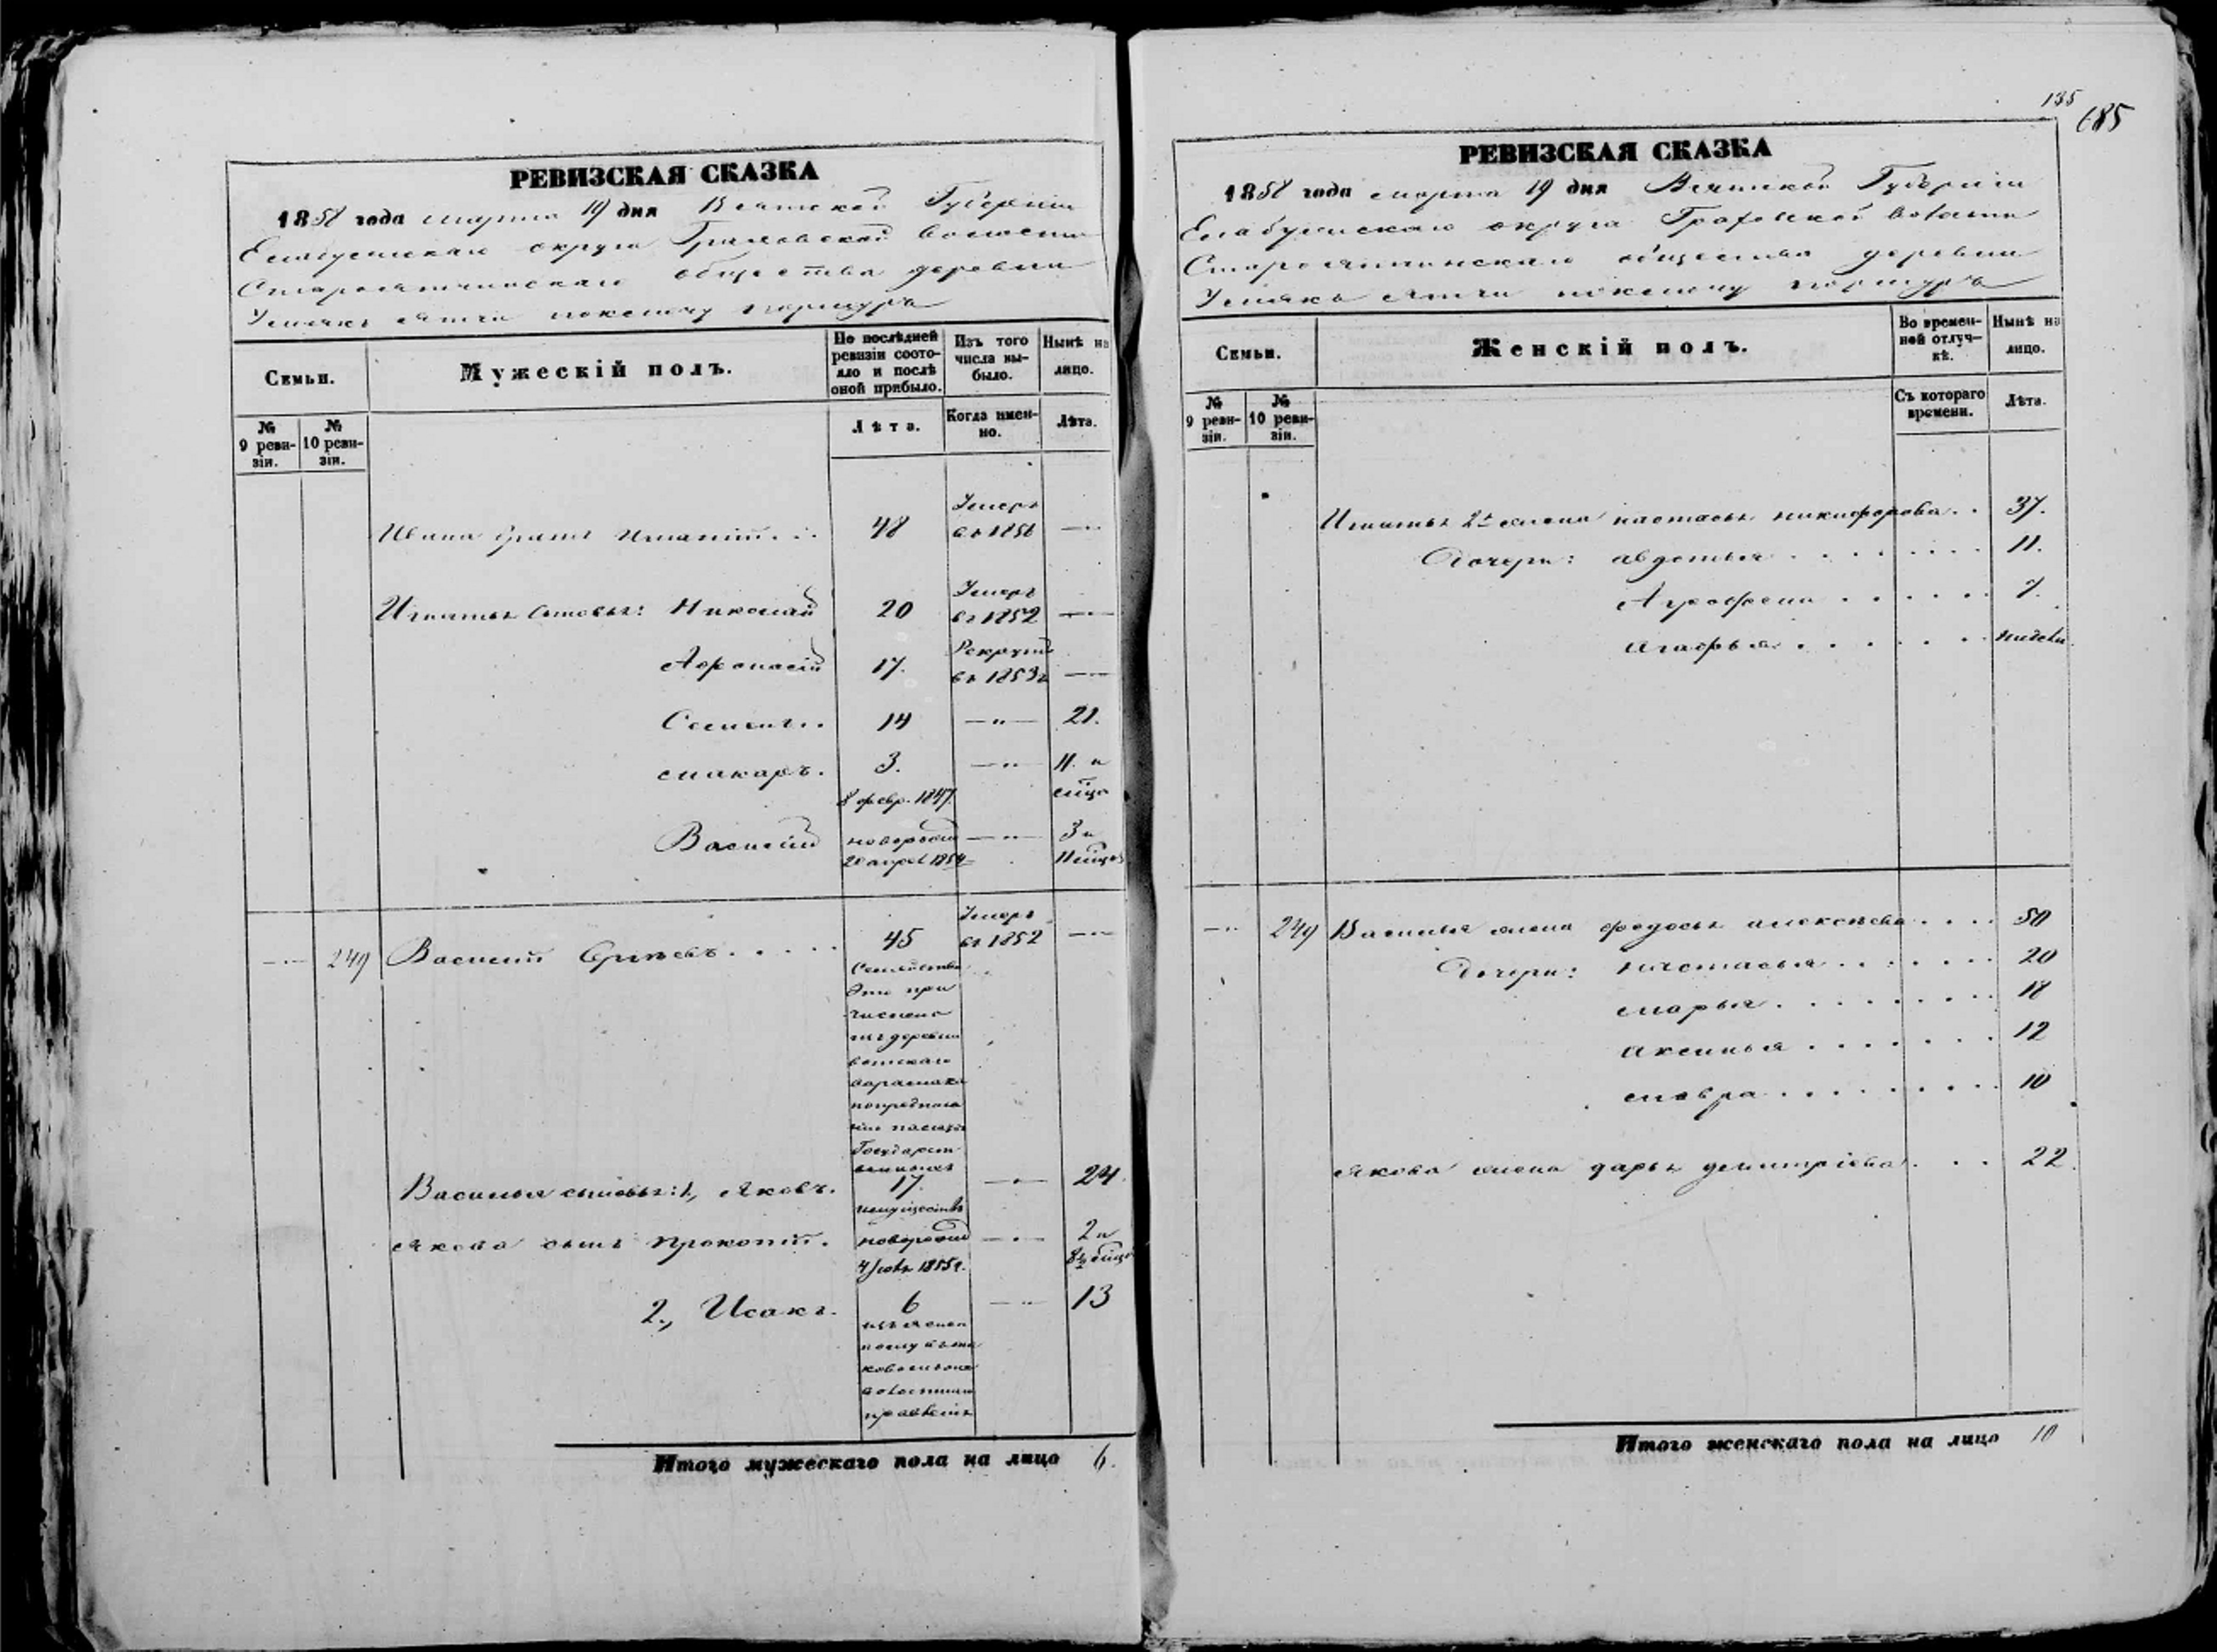 135
685
РЕВИЗСКАЯ СКАЗКА
1858 года марта 19 дня Вятской Губернiи
Елабугскаго округа Граховской волости
Староятчинскаго общества деревни
Усмякъ ятчи
Семьи.
Мужескiй полъ.
По послѣдней ревизiи состо-
яло и послѣ
оной прибыло.
Изъ того
числа вы-
было.
Нынѣ на
лицо.
№
9 реви-
зiи.
№
10 реви-
зiи.
Лѣта.
Когда имен-
но.
Лѣта.
Ивана братъ Игнатiй 48 Умеръ въ 1856
Игнатья сыновья: Николай 20 Умеръ въ 1852
Афонасiй 17. Рекрутъ въ 1853г
Семенъ 14 —"— 21.
макаръ. 3. —"— 11. и
8 февр. 1847. мцо
Василiй новорожд —"— 3 и
20 апрел 1854 11 мцов
249 Василiй 45 Умеръ въ 1852
Семейство
Это при
числено
изъ деревни
вотскаго
Государст-
венныхъ
Василья сыновья: 1, Яковъ. 17 —"— 24.
имуществъ
Якова сынъ Прокопiй. новорожд —"— 2 и
4 1855г.
2., Исакъ. 6 —"— 13
Итого мужескаго пола на лицо 6.
РЕВИЗСКАЯ СКАЗКА
1858 года марта 19 дня Вятской Губернiи
Елабугскаго округа Граховской волости
Староятчинскаго общества деревни
Усмякъ ятчи
Семьи.
Женскiй полъ.
Во времен-
ной отлуч-
кѣ.
Нынѣ на
лицо.
№
9 реви-
зiи.
№
10 реви-
зiи.
Съ котораго
времени.
Лѣта.
Игнатья 2я жена настасья никифорова 37.
Дочери: авдотья 11.
Агрофена 7.
агафья недели
249 Василья жена федосья алексѣева 50
Дочери: настасья 20
марья 18
аксинья 12
мавра 10
Якова жена дарья демитрiева 22.
Итого женскаго пола на лицо 10